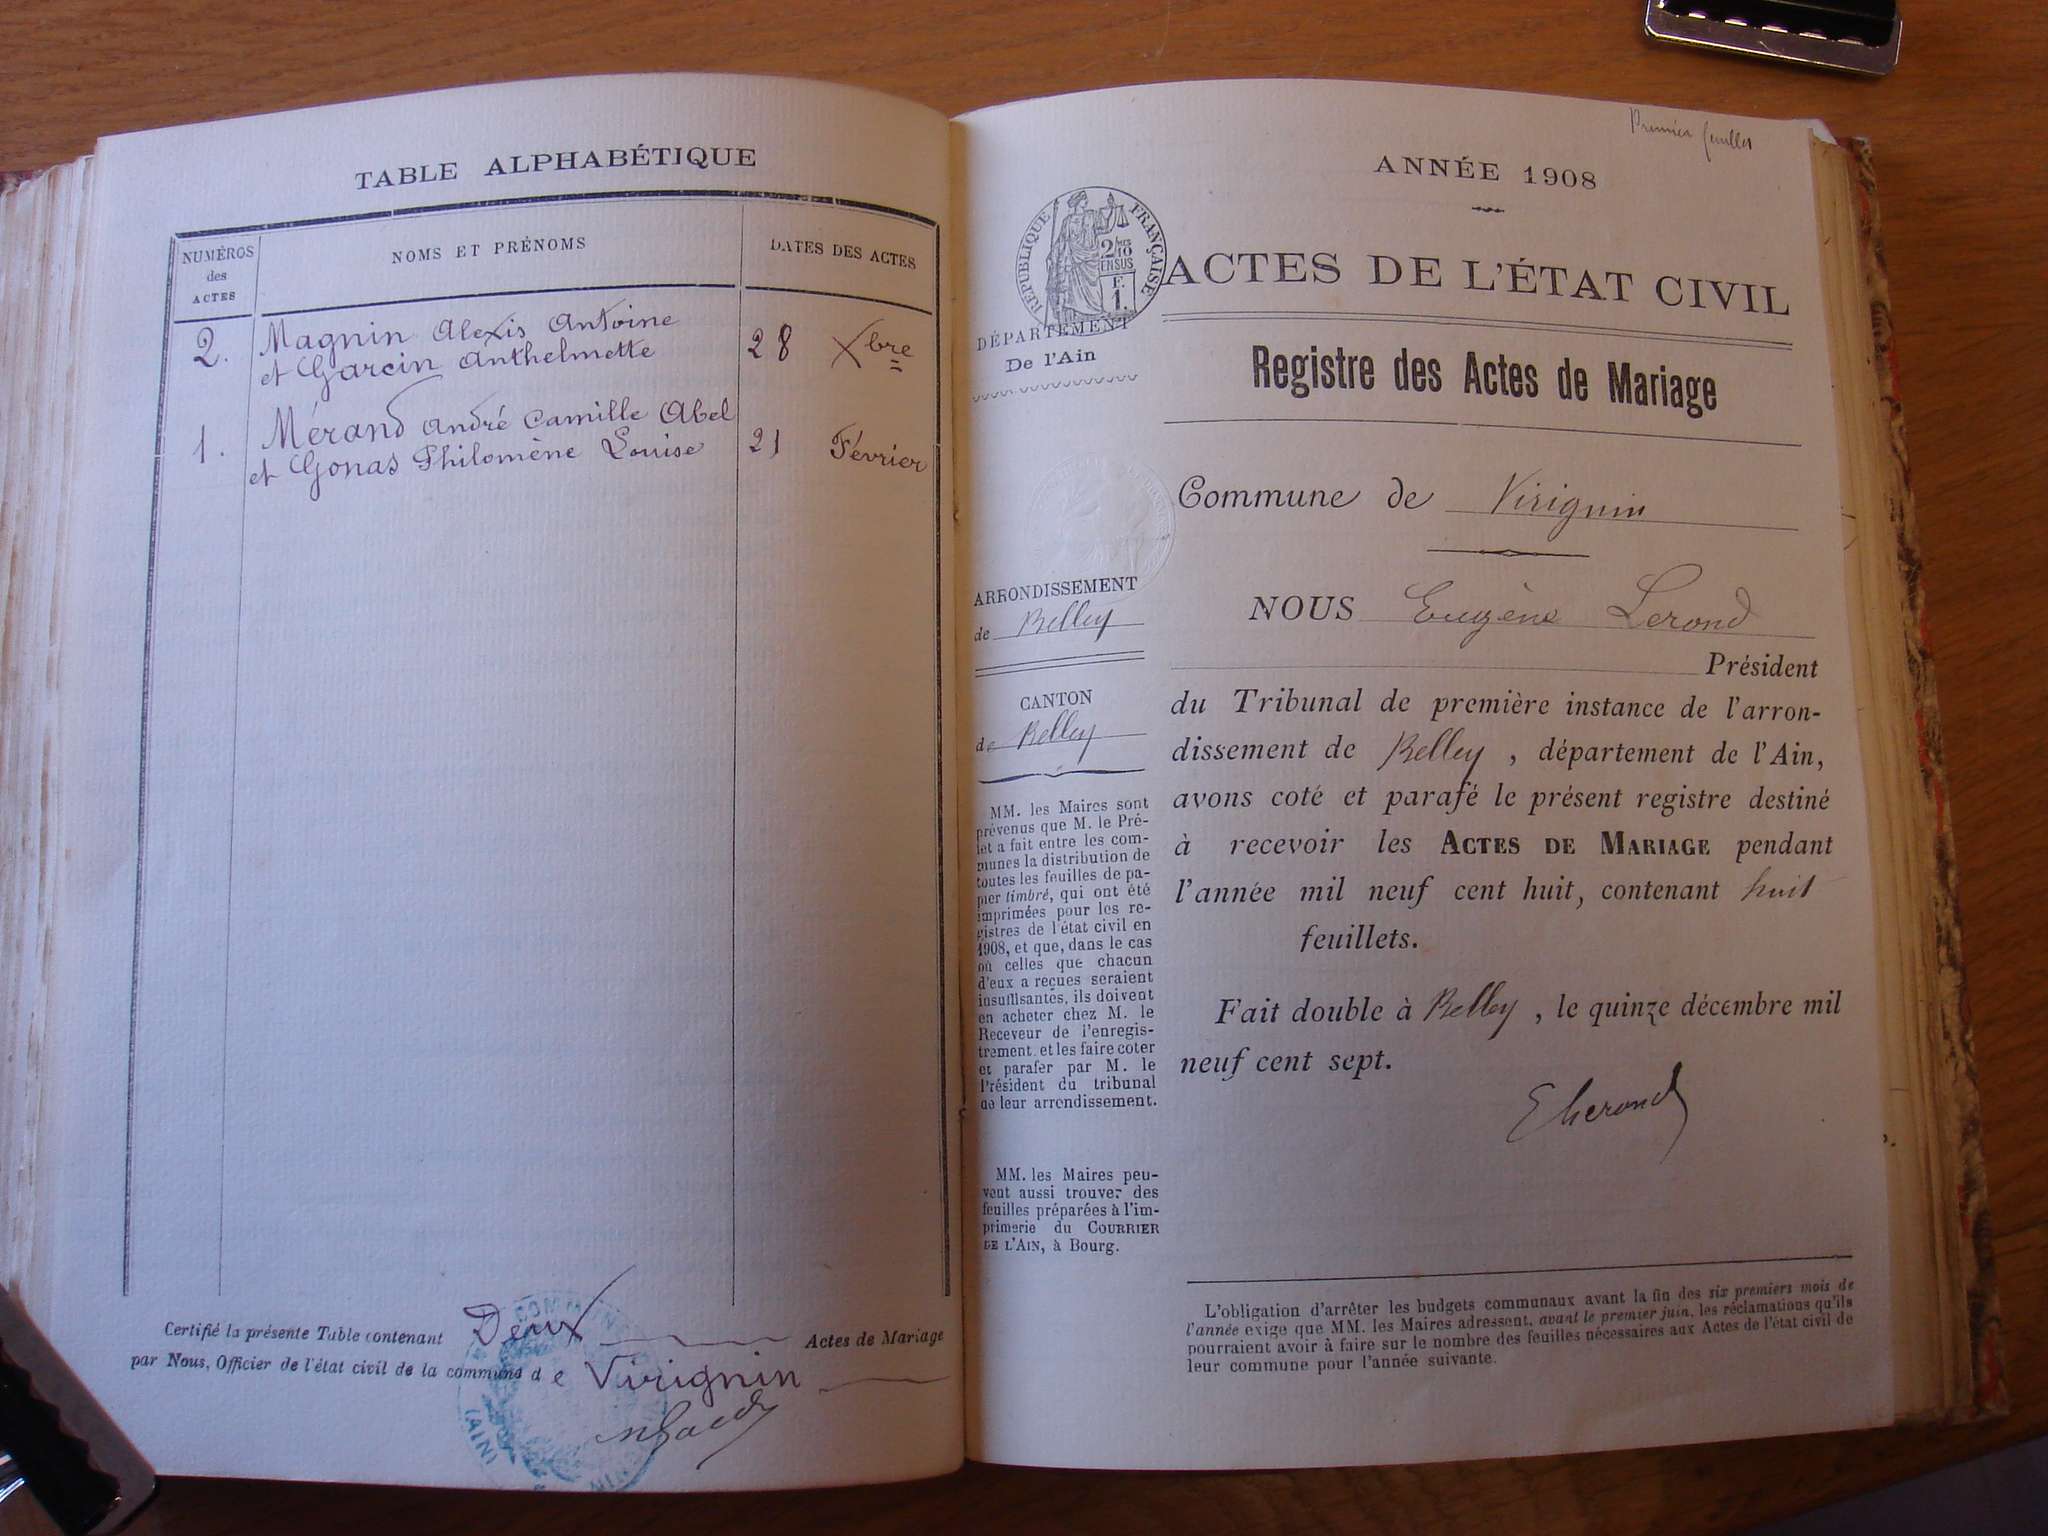 TABLE ALPHABÉTIQUE
NUMÉROS des ACTES
NOMS ET PRÉNOMS
DATES DES ACTES
2. Magnin Alexis Antoine 28 Xbre
et Garcin Anthelmette
1. Mérand André Camille Abel 21 Février
et Gonas Philomène Louise
Certifié la présente Table contenant Deux Actes de Mariage
par Nous, Officier de l'état civil de la commune de Virignin
Premier feuillet
ANNÉE 1908
RÉPUBLIQUE FRANÇAISE
2/10 EN SUS
F. 1.
ACTES DE L'ÉTAT CIVIL
DÉPARTEMENT
De l'Ain
Registre des Actes de Mariage
Commune de Virignin
ARRONDISSEMENT
de Belley
CANTON
de Belley
MM. les Maires sont
prévenus que M. le Pré-
fet a fait entre les com-
munes la distribution de
toutes les feuilles de pa-
pier timbré, qui ont été
imprimées pour les re-
gistres de l'état civil en
1908, et que, dans le cas
où celles que chacun
d'eux a reçues seraient
insuffisantes, ils doivent
en acheter chez M. le
Receveur de l'enregis-
trement et les faire coter
et parafer par M. le
Président du tribunal
de leur arrondissement.
MM. les Maires peu-
vent aussi trouver des
feuilles préparées à l'im-
primerie du COURRIER
DE L'AIN, à Bourg.
NOUS Eugène Lerond
Président
du Tribunal de première instance de l'arron-
dissement de Belley, département de l'Ain,
avons coté et parafé le présent registre destiné
à recevoir les ACTES DE MARIAGE pendant
l'année mil neuf cent huit, contenant huit
feuillets.
Fait double à Belley, le quinze décembre mil
neuf cent sept.
E Lerond
L'obligation d'arrêter les budgets communaux avant la fin des six premiers mois de
l'année exige que MM. les Maires adressent, avant le premier juin, les réclamations qu'ils
pourraient avoir à faire sur le nombre des feuilles nécessaires aux Actes de l'état civil de
leur commune pour l'année suivante.